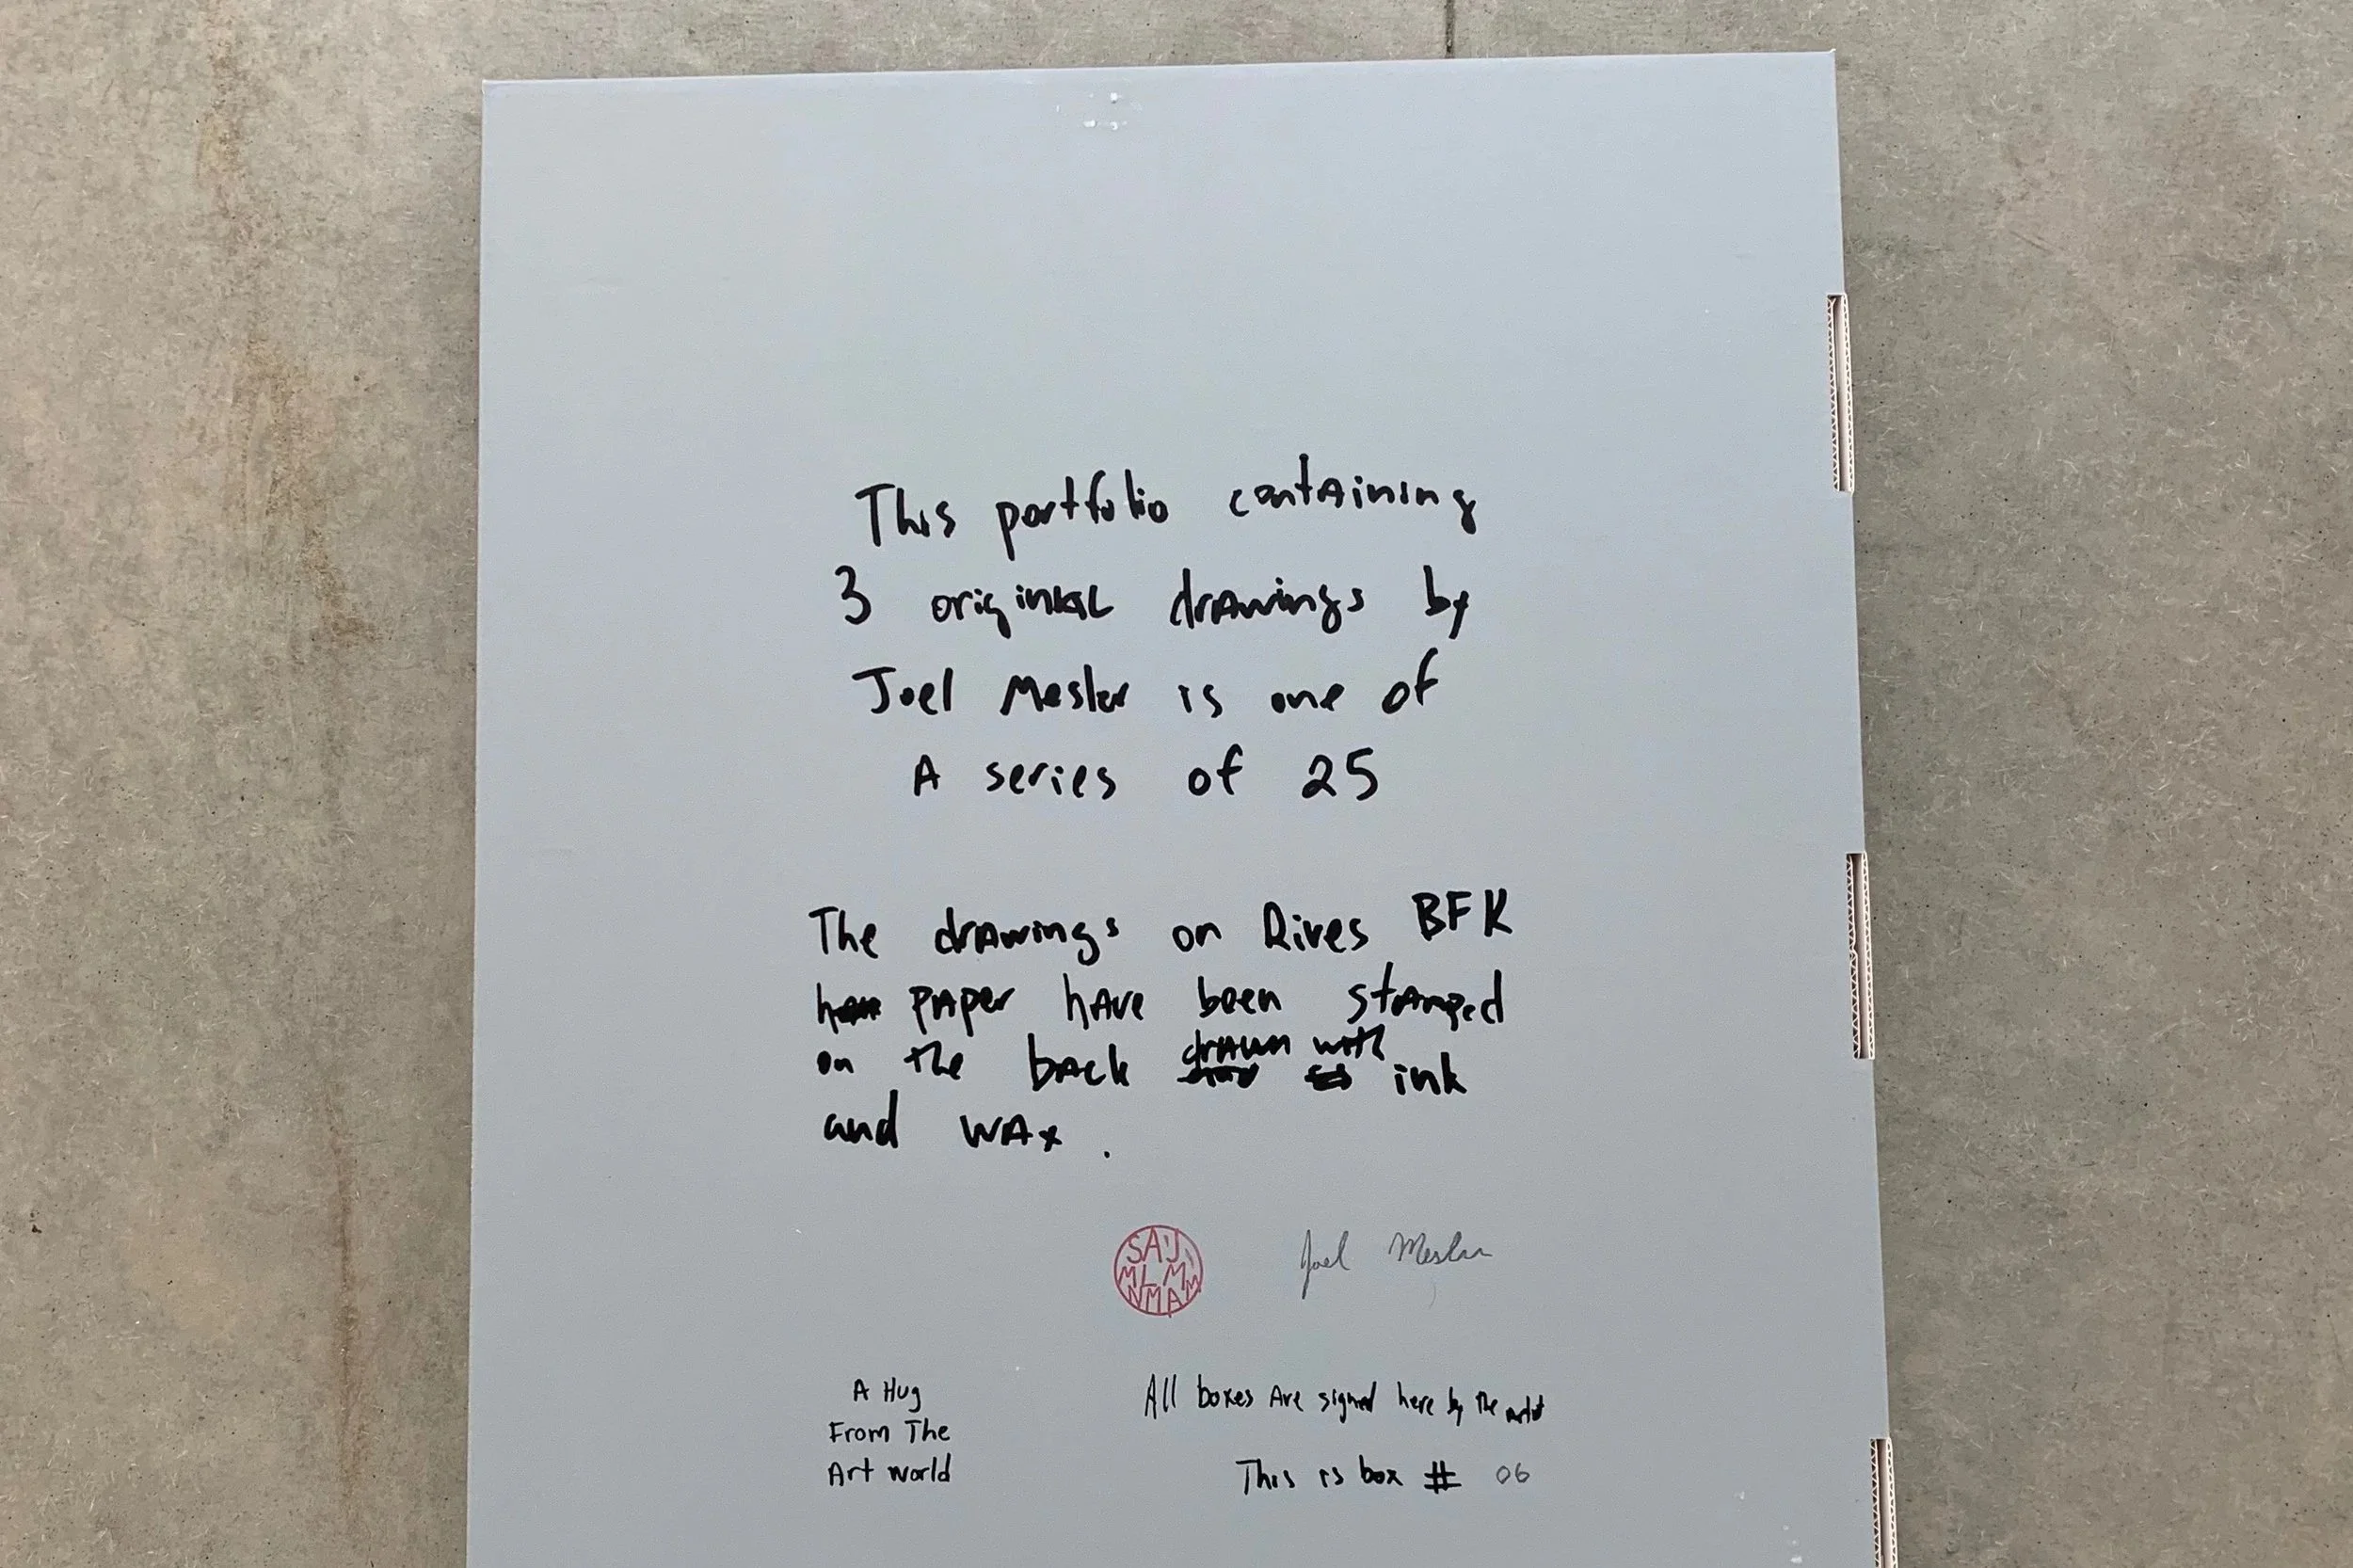 This portfolio containing
3 original drawings by
Joel Mesler is one of
A series of 25
The drawings on Rives BFK
paper have been stamped
on the back drawn with ink
and wax.
SAJ
MLMM
NMAM
Joel Mesler
A Hug
From The
Art world
All boxes Are signed here by the artist
This is box # 06